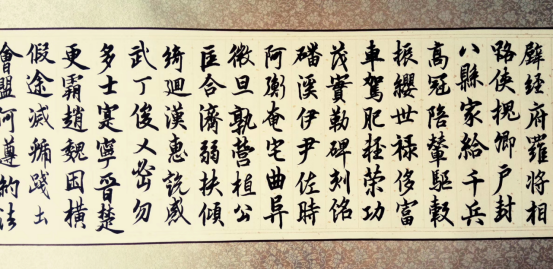 壁经府羅将相
路侠槐卿户封
八縣家給千兵
高冠陪輦驅轂
振纓世禄侈富
車駕肥輕榮功
茂實勒碑刻銘
磻溪伊尹佐時
阿衡奄宅曲阜
微旦孰營桓公
匡合濟弱扶傾
綺迴漢惠説感
武丁俊乂密勿
多士寔寧晉楚
更霸趙魏困横
假途滅虢踐土
會盟何遵約法